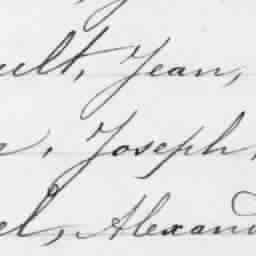 ult, Jean,
e, Joseph,
el, Alexan